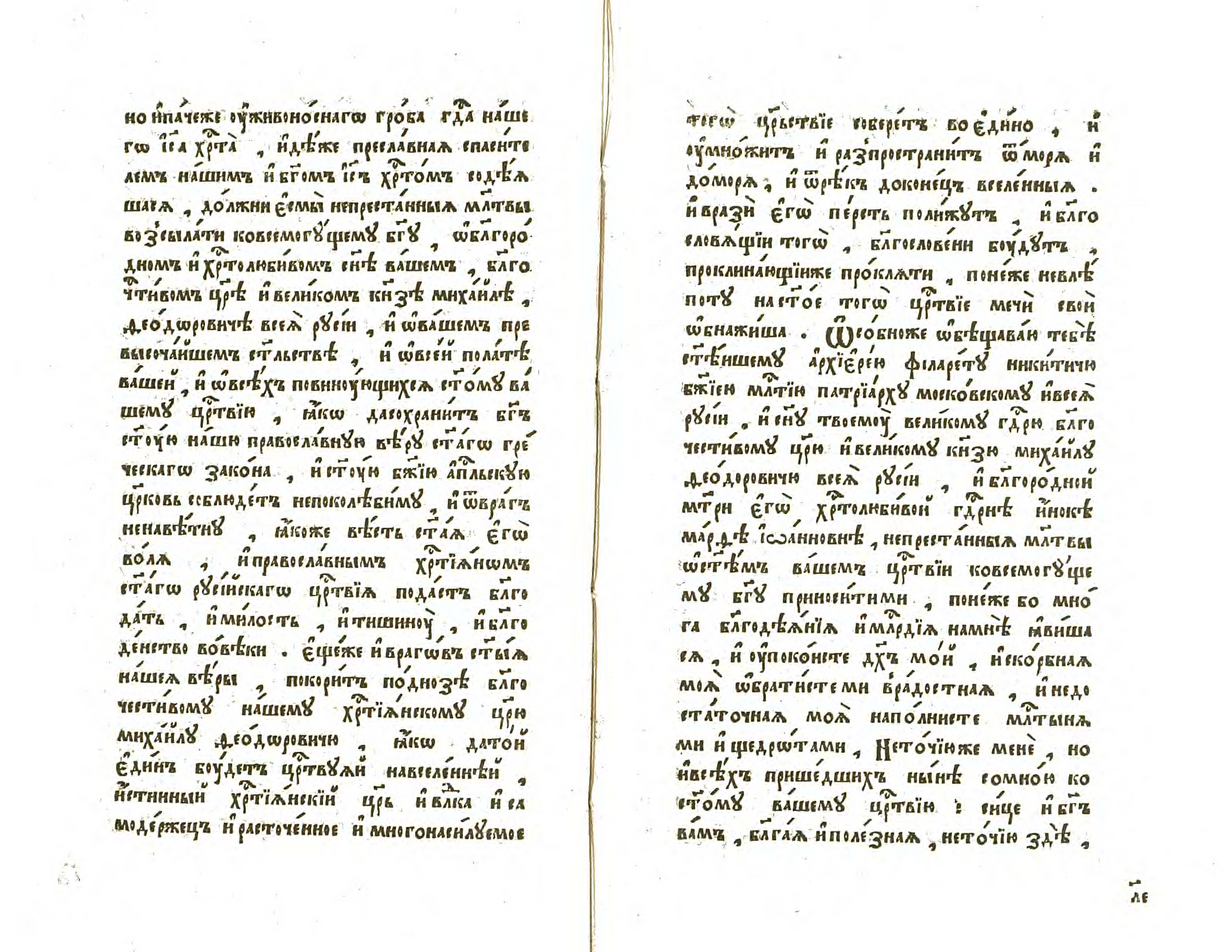 но и҆па́чеже ᲂу҆живоно́снагѡ гро́ба гдⷭ҇а на́ше
гѡ і҆с҃а хрⷭ҇та̀ , и҆дѣ́же пресла́вная спаси́те
лемъ на́шимъ и҆ бг҃омъ і҆с҃ъ хрⷭ҇то́мъ содѣ́ѧ
шаѧ , до́лжни є҆смы̀ непреста́нныѧ мл҃твы
возсыла́ти ковсемогу́щему бг҃у , ѡ҆бл҃горо́
дномъ и҆ хрⷭ҇толюби́вомъ сн҃ѣ ва́шемъ , бл҃го
чⷭ҇ти́вомъ цр҃ѣ и҆ вели́комъ кн҃зѣ миха́илѣ ,
ѳео́дѡровичѣ всеѧ̀ русі́и , и҆ ѡ҆ва́шемъ пре
высоча́йшемъ ст҃льствѣ , и҆ ѡ҆все́й пола́тѣ
ва́шей , и҆ ѡ҆всѣ́хъ повинꙋ́ющихсѧ ст҃о́му ва́
шему црⷭ҇твїю , ꙗ҆́кѡ дасохрани́тъ бг҃ъ
ст҃ꙋ́ю нашю правосла́вную вѣ́ру ст҃а́гѡ гре́
ческагѡ зако́на , и҆ ст҃ꙋ́ю бж҃їю а҆пⷭ҇льскую
цр҃ковь соблюде́тъ непоколѣби́му , и҆ ѿвра́гъ
ненавѣ́тну , ꙗ҆́коже вѣ́сть ст҃а́ѧ є҆гѡ̀
во́лѧ , и҆ правосла́внымъ хрⷭ҇тїѧ́нѡмъ
ст҃а́гѡ русі́йскагѡ црⷭ҇твїѧ пода́стъ бл҃го
да́ть , и҆ ми́лость , и҆ тишинꙋ̀ , и҆ бл҃го
де́нство во́вѣки . є҆ще́же и҆ врагѡ́въ ст҃ы́ѧ
на́шеѧ вѣ́ры , покори́тъ по́днозѣ бл҃го
чести́вому на́шему хрⷭ҇тїѧ́нскому цр҃ю
миха́йлу ѳео́дѡровичю , ꙗ҆́кѡ дато́й
є҆ди́нъ бꙋ́детъ црⷭ҇твꙋѧй навселе́ннѣй ,
и҆́стинный хрⷭ҇тїѧ́нскїй цр҃ь и҆ влⷣка и҆ са
моде́ржецъ и҆ расточе́нное и҆ многонаси́луемое
тогѡ̀ црⷭ҇ьствїе собере́тъ во є҆ди́но , и҆
ᲂу҆мно́житъ и҆ разпространи́тъ ѿмо́ря и҆
до́моря , и҆ ѿрѣ́къ доконе́цъ вселе́нныѧ .
и҆ врази̏ є҆гѡ̀ пе́рсть поли́жутъ , и҆ бл҃го
словѧ́щїи тогѡ̀ , бл҃гослове́ни бꙋ́дутъ ,
проклина́ющїиже про́клѧти , поне́же невлѣ́
поту насто́е тогѡ̀ црⷭ҇твїе мечи̏ своѝ
ѡ҆бнажи́ша . Ѡ҆со́бноже ѡ҆бѣщава́ю тебѣ̀
ст҃ѣ́йшему а҆рхїе҆ре́ю філаре́ту ники́тичю
бж҃їею мл҃тїю патрїа́рху моско́вскому и҆всеѧ̀
русі́и , и҆ сн҃у твоемꙋ̀ вели́кому гдⷭ҇рю бл҃го
чести́вому цр҃ю и҆ вели́кому кн҃зю миха́йлу
ѳео́доровичю всеѧ̀ русі́и , и҆ бл҃горо́дной
мт҃ри є҆гѡ̀ хрⷭ҇толюби́вой гдⷭ҇рнѣ и҆́нокѣ
ма́рѳѣ і҆ѡа́нновнѣ , непреста́нныѧ мл҃твы
ѡ҆ст҃ѣ́мъ ва́шемъ црⷭ҇твїи ковсемогу́ще
му бг҃у приноси́тими , поне́же бо мно́
га бл҃годѣѧ́нїѧ и҆ млⷭ҇рдїѧ намнѣ̀ ꙗ҆ви́ша
сѧ , и҆ ᲂу҆поко́исте дх҃ъ мо́й , и҆ ско́рбнаѧ
моѧ̀ ѡ҆брати́сте ми в҆ра́достнаѧ , и҆ недо
ста́точнаѧ моѧ̀ напо́лнисте мл҃тынѧ
ми и҆ щедрѡ́тами , Нето́чїюже мене̏ , но
и҆всѣ́хъ прише́дшихъ ны́нѣ сомно́ю ко
ст҃о́му ва́шему црⷭ҇твїю : си́це и҆ бг҃ъ
ва́мъ , бл҃га́ѧ и҆ поле́знаѧ , нето́чїю здѣ̀ ,
л҃е